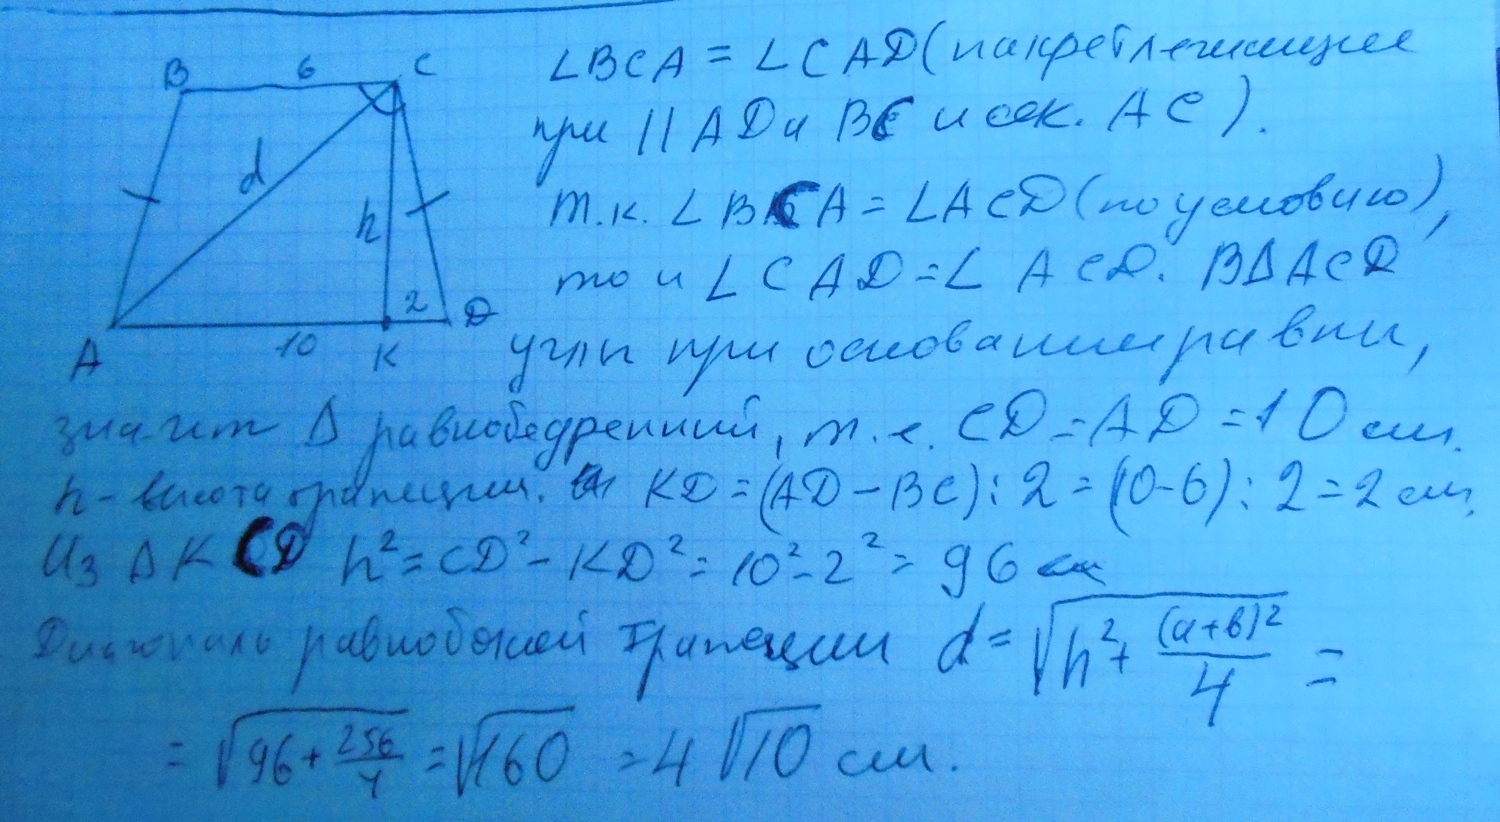 B 6 C
d
h
2
A 10 K D
∠BCA = ∠CAD (накрест лежащие
при || AD и BC и сек. AC).
т.к. ∠BCA = ∠ACD (по условию),
то и ∠CAD = ∠ACD. В Δ ACD
углы при основании равны,
значит Δ равнобедренный, т.е. CD = AD = 10 см.
h - высота трапеции. KD = (AD - BC) : 2 = (10-6) : 2 = 2 см.
Из Δ KCD h² = CD² - KD² = 10² - 2² = 96 см
Диагональ равнобокой трапеции d = √(h² + (a+b)²/4) =
= √(96 + 256/4) = √160 = 4√10 см.